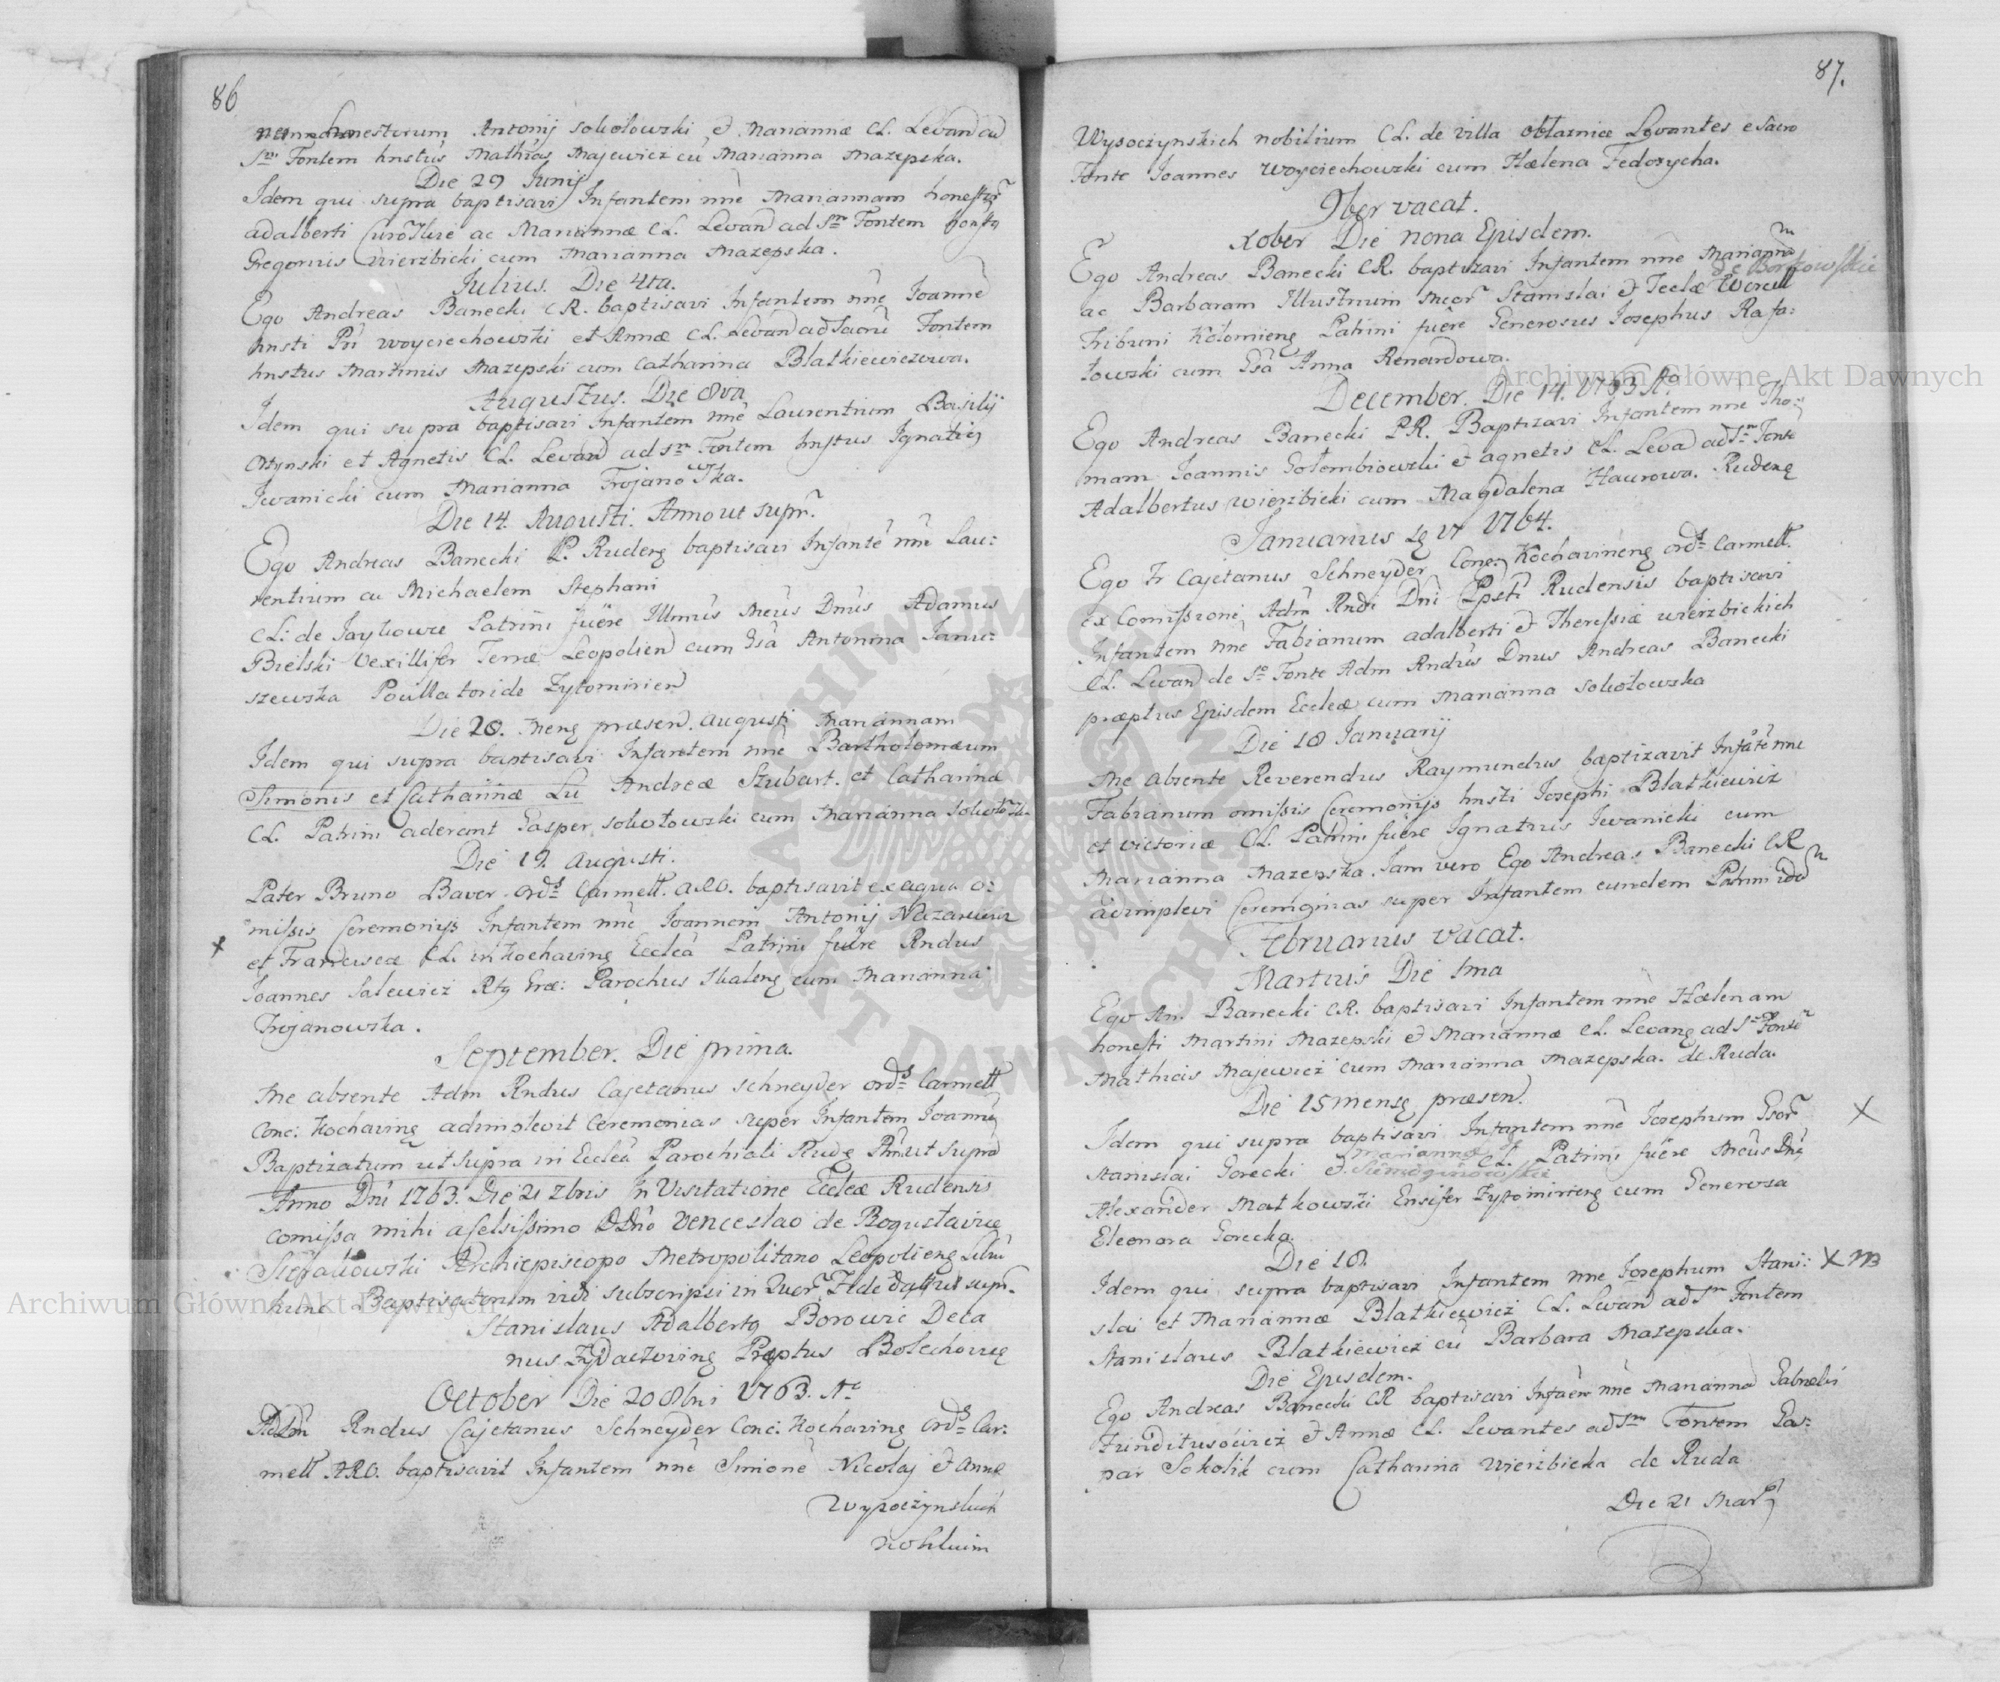 86
honestorum Antonij Sokołowski et Mariannæ CL. Levand ad
Sm Fontem hnstus Mathias Majewicz cu Marianna Mazepska.
Die 29 Junij
Idem qui supra baptisavi Infantem nne Mariannam honestor
Adalberti ac Mariannæ CL. Levand ad Sm Fontem
Gregorius Wierzbicki cum Marianna Mazepska.
Julius. Die 4ta.
Ego Andreas Banecki CR. baptisavi Infantem nne Joanne
hnsti Woyciechowski et Annæ CL. Levand ad Sacru Fontem
hnstus Martinus Mazepski cum Catharina Blatkiewiczowa.
Augustus. Die 8va
Idem qui supra baptisavi Infantem nne Laurentium Basilij
et Agnetis CL. Levand ad Sm Fontem hnstus Ignatius
Iwanicki cum Marianna Trojanowska.
Die 14. Augusti. Anno ut supr.
Ego Andreas Banecki P. Rudens baptisavi Infante nne Lau:
rentium ac Michaelem Stephani
CL: de Jaykowce Patrini fuere Illmus Meus Dnus Adamus
Bielski Vexillifer Terræ Leopolien cum Gsa Antonina Janu:
szewska Pocillatoride Zytomirien
Die 28. Mens præsen. Augusti Mariannam
Idem qui supra baptisavi Infantem nne Bartholomæum
Simonis et Catharinæ Lu Andreæ Szubart. et Catharina
CL. Patrini aderant Gasper Sokołowski cum Marianna Sokołowska
Die 19. Augusti.
Pater Bruno Baver Ords Carmelt. A.R.O. baptisavit ex aqua o:
missis Ceremonijs Infantem nne Joannem Antonij Nazarewicz
x et Franciscæ CL. in Kochavins Ecclea Patrini fuere Rndus
Joannes Salewicz Rts Græ: Parochus Skalens cum Marianna
Trojanowska.
September. Die prima.
Me absente Adm Rndus Cajetanus Schneyder Ords Carmelt
Conc: Kochavins adimplevit Ceremonias super Infantem Joannem
Baptizatum ut supra in Ecclea Parochiali Rude Pnni ut supra
Anno Dni 1763. Die 21 7bris In Visitatione Ecclæ Rudensis
comissa mihi a Celsissimo DDno Venceslao de Bogusławice
Sierakowski Archiepiscopo Metropolitano Leopoliens Libru
hunc Baptisatorum vidi subscripsi in Quor Fide Datt ut supr.
Stanislaus Adalbertus Borowic Deca
nus Zydaczovins Præptus Bolechovie
October Die 20 8bri 1763. Ao
Adm Rndus Cajetanus Schneyder Conc: Kochavins Ords Car:
melt ARO. baptisavit Infantem nne Simone Nicolaj et Annæ
Wysoczynskich
nobilium
87.
Wysoczynskich nobilium CL. de villa Obłaznica Levantes e Sacro
Fonte Joannes Woyciechowski cum Hælena Fedorycha.
9ber vacat.
Xober Die nona Ejusdem.
Ego Andreas Banecki CR. baptizavi Infantem nne Mariannam
de Borkowskie
ac Barbaram Illustrium Mcor Stanislai et Teclæ Worcell
Tribuni Kołomiens Patrini fuere Generosus Josephus Rafa:
łowski cum Gsa Anna Renardowa.
December. Die 14. 1763 Ao
Ego Andreas Banecki PR. Baptizavi Infantem nne Tho:
mam Joannis Gołembiowski et Agnetis CL. Leva ad Sm Fonte
Adalbertus Wierzbicki cum Magdalena Hawrowa. Rudens
Januarius 1764.
Ego Fr Cajetanus Schneyder Conc: Kochavinens Ords Carmelt.
ex Comissione Adm Rndi Dni Ppsti Rudensis baptisavi
Infantem nne Fabianum Adalberti et Theressiæ Wierzbickich
CL. Levand de So Fonte Adm Rndus Dnus Andreas Banecki
præptus Ejusdem Eccleæ cum Marianna Sokołowska
Die 18 Januarij
Me absente Reverendus Raymundus baptizavit Infate nne
Fabianum omissis Ceremonijs hnsti Josephi Blatkiewicz
et Victoriæ CL. Patrini fuere Ignatius Iwanicki cum
Marianna Mazepska. Jam vero Ego Andreas Banecki CR
adimplevi Ceremonias super Infantem eundem Patrini
Februarius vacat.
Martius Die 1ma
Ego An. Banecki CR. baptisavi Infantem nne Hælenam
honesti Martini Mazepski et Mariannæ CL. Levans ad Sm Fonte
Mathias Majewicz cum Marianna Mazepska. de Ruda.
Die 15 Mens præsen.
Idem qui supra baptisavi Infantem nne Josephum Gsor x
Mariannæ de
Stanislai Gorecki et CL. Patrini fuere Mcus Dns
Siemiginowskie
Alexander Matkowski Ensifer Zytomiriens cum Generosa
Eleonora Gorecka.
Die 18.
Idem qui supra baptisavi Infantem nne Josephum Stani: x m
slai et Mariannæ Blatkiewicz CL. Levand ad Sm Fontem
Stanislaus Blatkiewicz cu Barbara Mazepska.
Die Ejusdem.
Ego Andreas Banecki CR baptisavi nne Marianna Gabrielis
et Annæ CL. Levantes ad Sm Fontem Gas:
par Sokolik cum Catharina Wierzbicka de Ruda
Die 21 Mar
Archiwum Główne Akt Dawnych
Archiwum Główne Akt Dawnych
ARCHIWUM GŁÓWNE AKT DAWNYCH